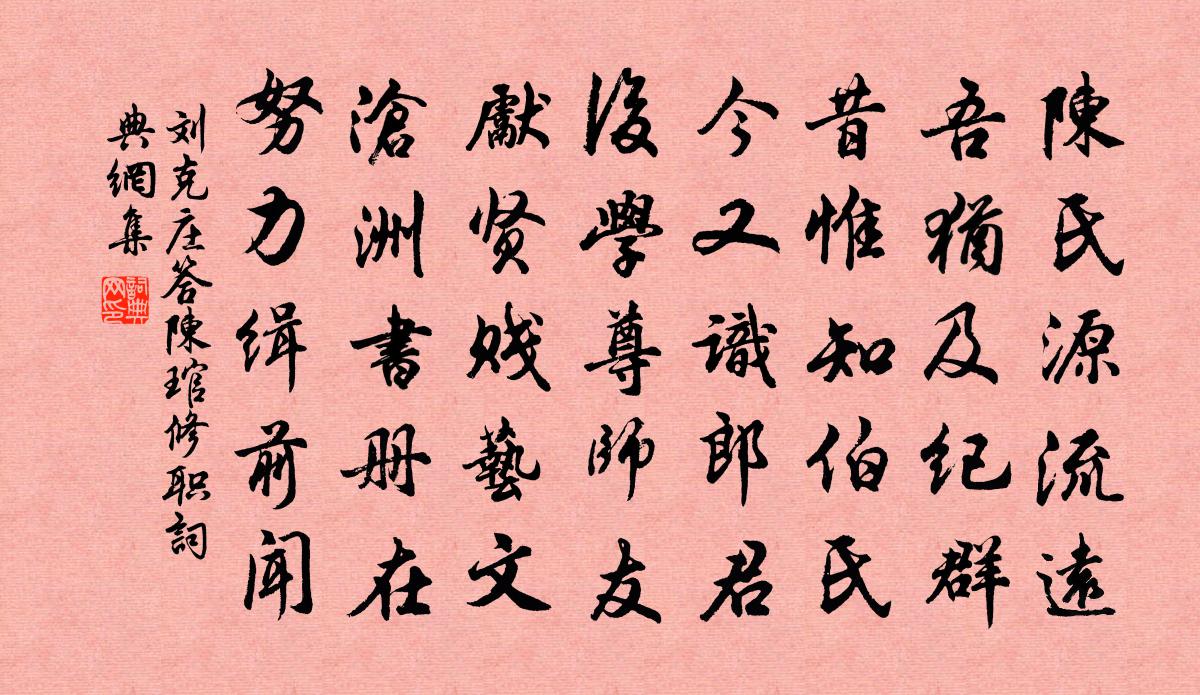 陳氏源流遠
吾猶及紀群
昔惟知伯氏
今又識郎君
後學尊師友
獻贤贱藝文
滄洲書册在
努力缉前闻
刘克庄答陳琯修职詞
典網集
詞典网印